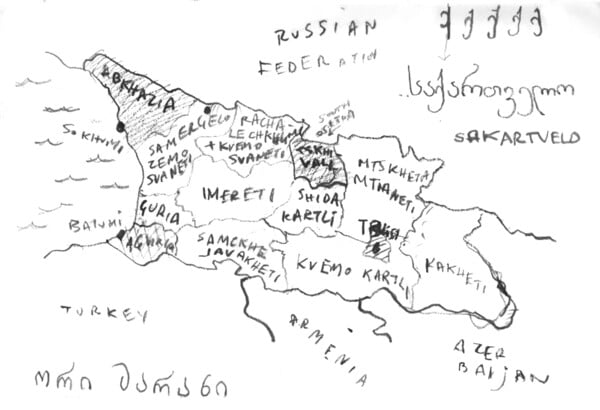 RUSSIAN
FEDERATION
საქართველო
SAKARTVELO
ABKHAZIA
SOKHUMI
SAMERGELO
ZEMO
SVANETI
RACHA
LECHKHUMI
+ KVEMO
SVANETI
SOUTH
OSETIA
TSKHIN
VALI
MTSKHETA
MTIANETI
IMERETI
SHIDA
KARTLI
GURIA
BATUMI
SAMCKHE
JAVAKHETI
KVEMO KARTLI
KAKHETI
TURKEY
ARMENIA
AZER
BAIJAN
ორი მარანი